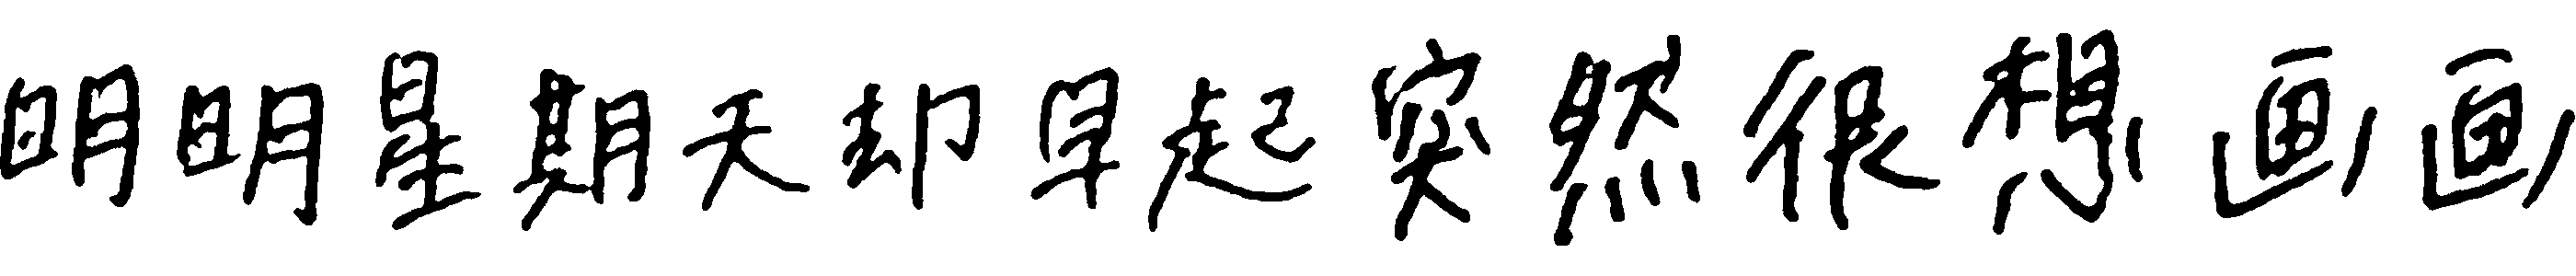 明明星期天却早起突然很想画画